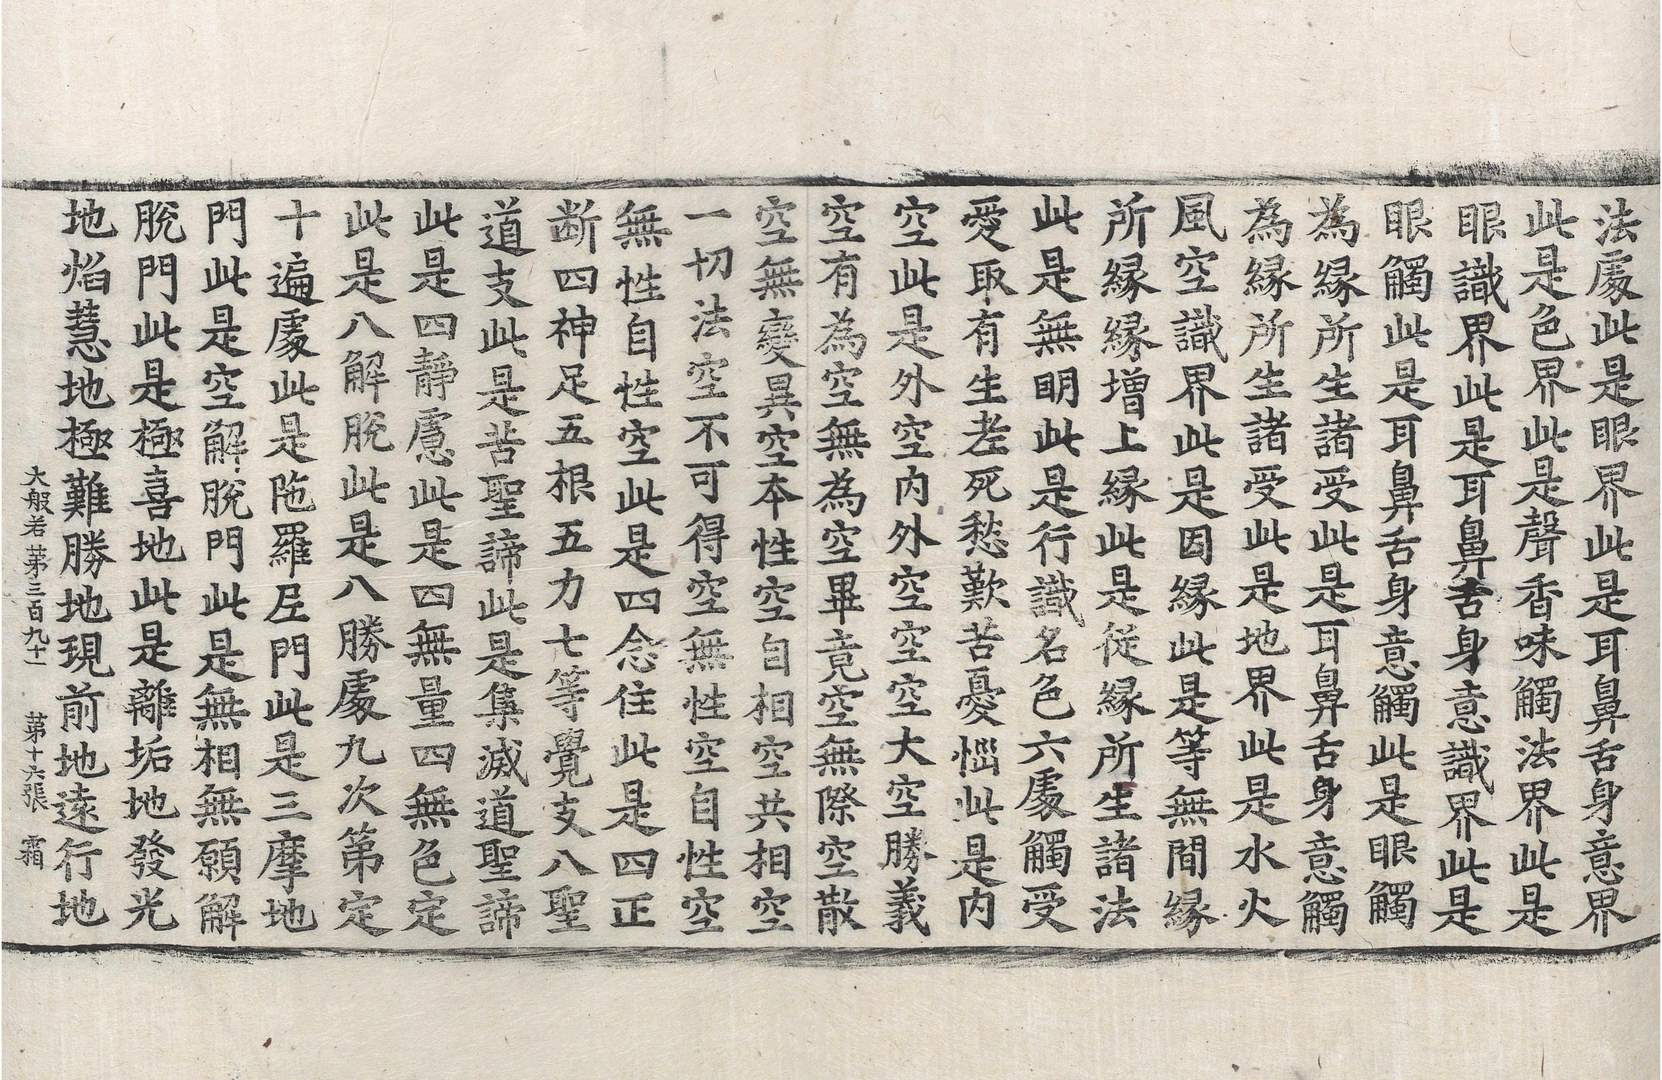 法處此是眼界此是耳鼻舌身意界
此是色界此是聲香味觸法界此是
眼識界此是耳鼻舌身意識界此是
眼觸此是耳鼻舌身意觸此是眼觸
為緣所生諸受此是耳鼻舌身意觸
為緣所生諸受此是地界此是水火
風空識界此是因緣此是等無間緣
所緣緣增上緣此是從緣所生諸法
此是無明此是行識名色六處觸受
愛取有生老死愁歎苦憂惱此是內
空此是外空內外空空空大空勝義
空有為空無為空畢竟空無際空散
空無變異空本性空自相空共相空
一切法空不可得空無性空自性空
無性自性空此是四念住此是四正
断四神足五根五力七等覺支八聖
道支此是苦聖諦此是集滅道聖諦
此是四靜慮此是四無量四無色定
此是八解脫此是八勝處九次第定
十遍處此是陁羅尼門此是三摩地
門此是空解脫門此是無相無願解
脫門此是極喜地此是離垢地發光
地焰慧地極難勝地現前地遠行地
大般若第三百九十一 第十六張 霜